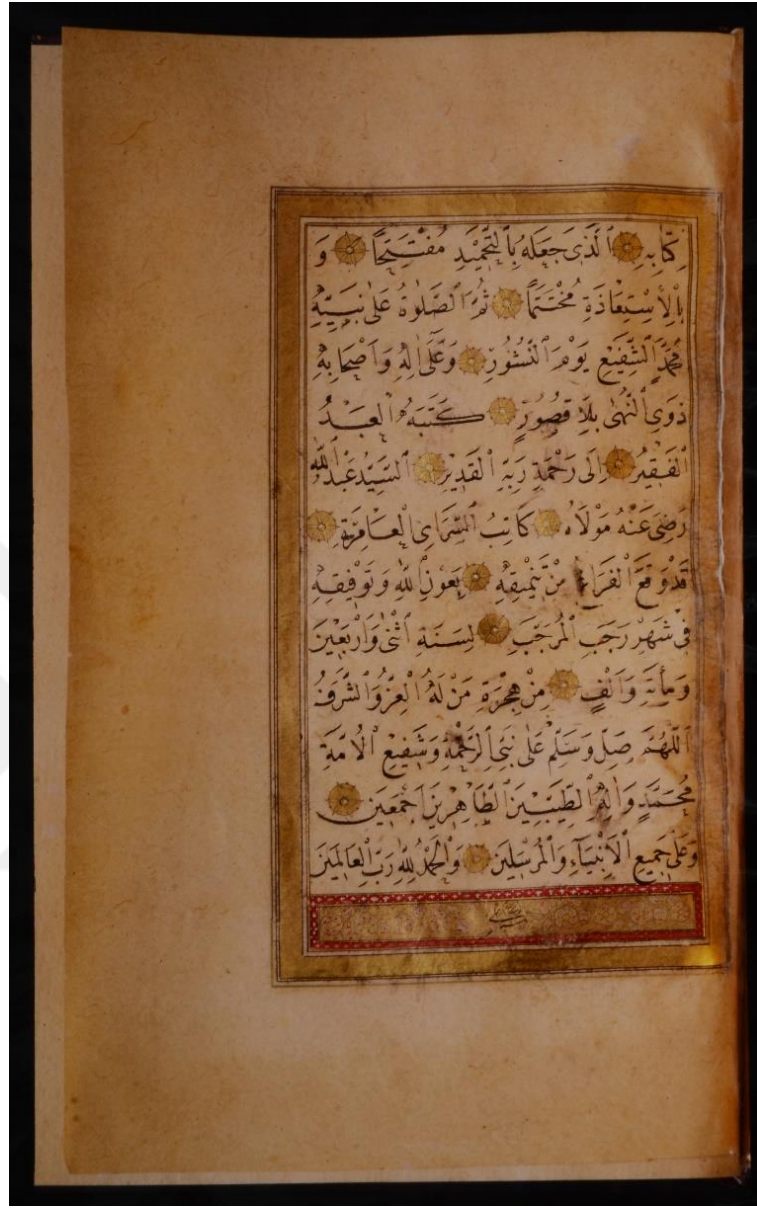 كِتَابِهِ ٱلَّذِى جَعَلَهُ بِٱلتَّحْمِيدِ مُفْتَتَحًا وَ
بِٱلْأِسْتِعَاذَةِ مُخْتَتَمًا ثُمَّ ٱلصَّلٰوةُ عَلٰى نَبِيِّهِ
مُحَمَّدٍ ٱلشَّفِيعِ يَوْمَ ٱلنُّشُورِ وَعَلٰى اٰلِهِ وَاَصْحَابِهِ
ذَوِى ٱلنُّهٰى بِلَا قُصُورٍ كَتَبَهُ ٱلْعَبْدُ
ٱلْفَقِيرُ اِلٰى رَحْمَةِ رَبِّهِ ٱلْقَدِيرِ ٱلسَّيِّدُ عَبْدُ ٱللّٰهِ
رَضِىَ عَنْهُ مَوْلَاهُ كَاتِبُ ٱلسَّرَاىِ ٱلْعَامِرَةِ
قَدْ وَقَعَ ٱلْفَرَاغُ مِنْ تَنْمِيقِهِ بِعَوْنِ ٱللّٰهِ وَتَوْفِيقِهِ
فِى شَهْرِ رَجَبِ ٱلْمُرَجَّبِ لِسَنَةِ ٱثْنٰى وَاَرْبَعِينَ
وَمِأَتَةِ وَاَلْفٍ مِنْ هِجْرَةِ مَنْ لَهُ ٱلْعِزُّ وَٱلشَّرَفُ
ٱللّٰهُمَّ صَلِّ وَسَلِّمْ عَلٰى نَبِىِّ ٱلرَّحْمَةِ وَشَفِيعِ ٱلْاُمَّةِ
مُحَمَّدٍ وَاٰلِهِ ٱلطَّيِّبِينَ ٱلطَّاهِرِينَ اَجْمَعِينَ
وَعَلٰى جَمِيعِ ٱلْاَنْبِيَآءِ وَٱلْمُرْسَلِينَ وَٱلْحَمْدُ لِلّٰهِ رَبِّ ٱلْعَالَمِينَ